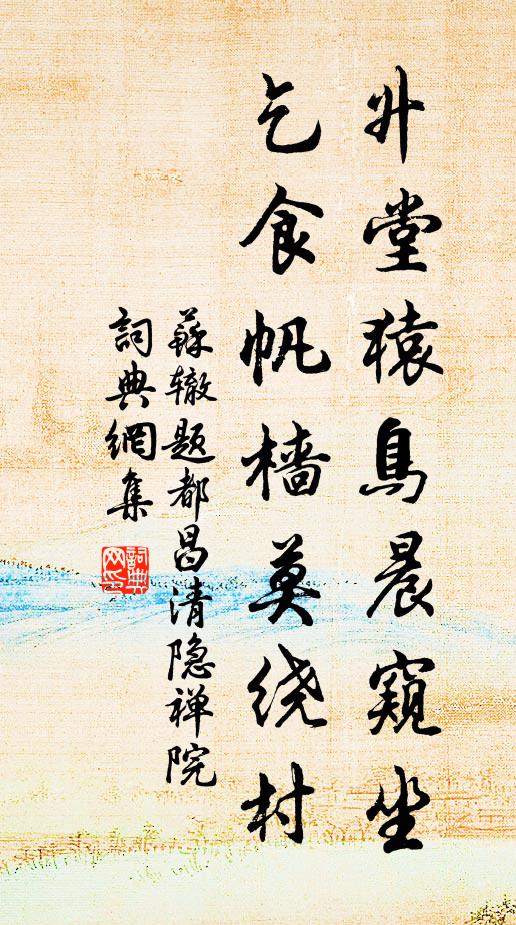 升堂猿鳥晨窺坐
乞食帆檣莫绕村
蘇辙题都昌清隐禅院
詞典網集
詞典网